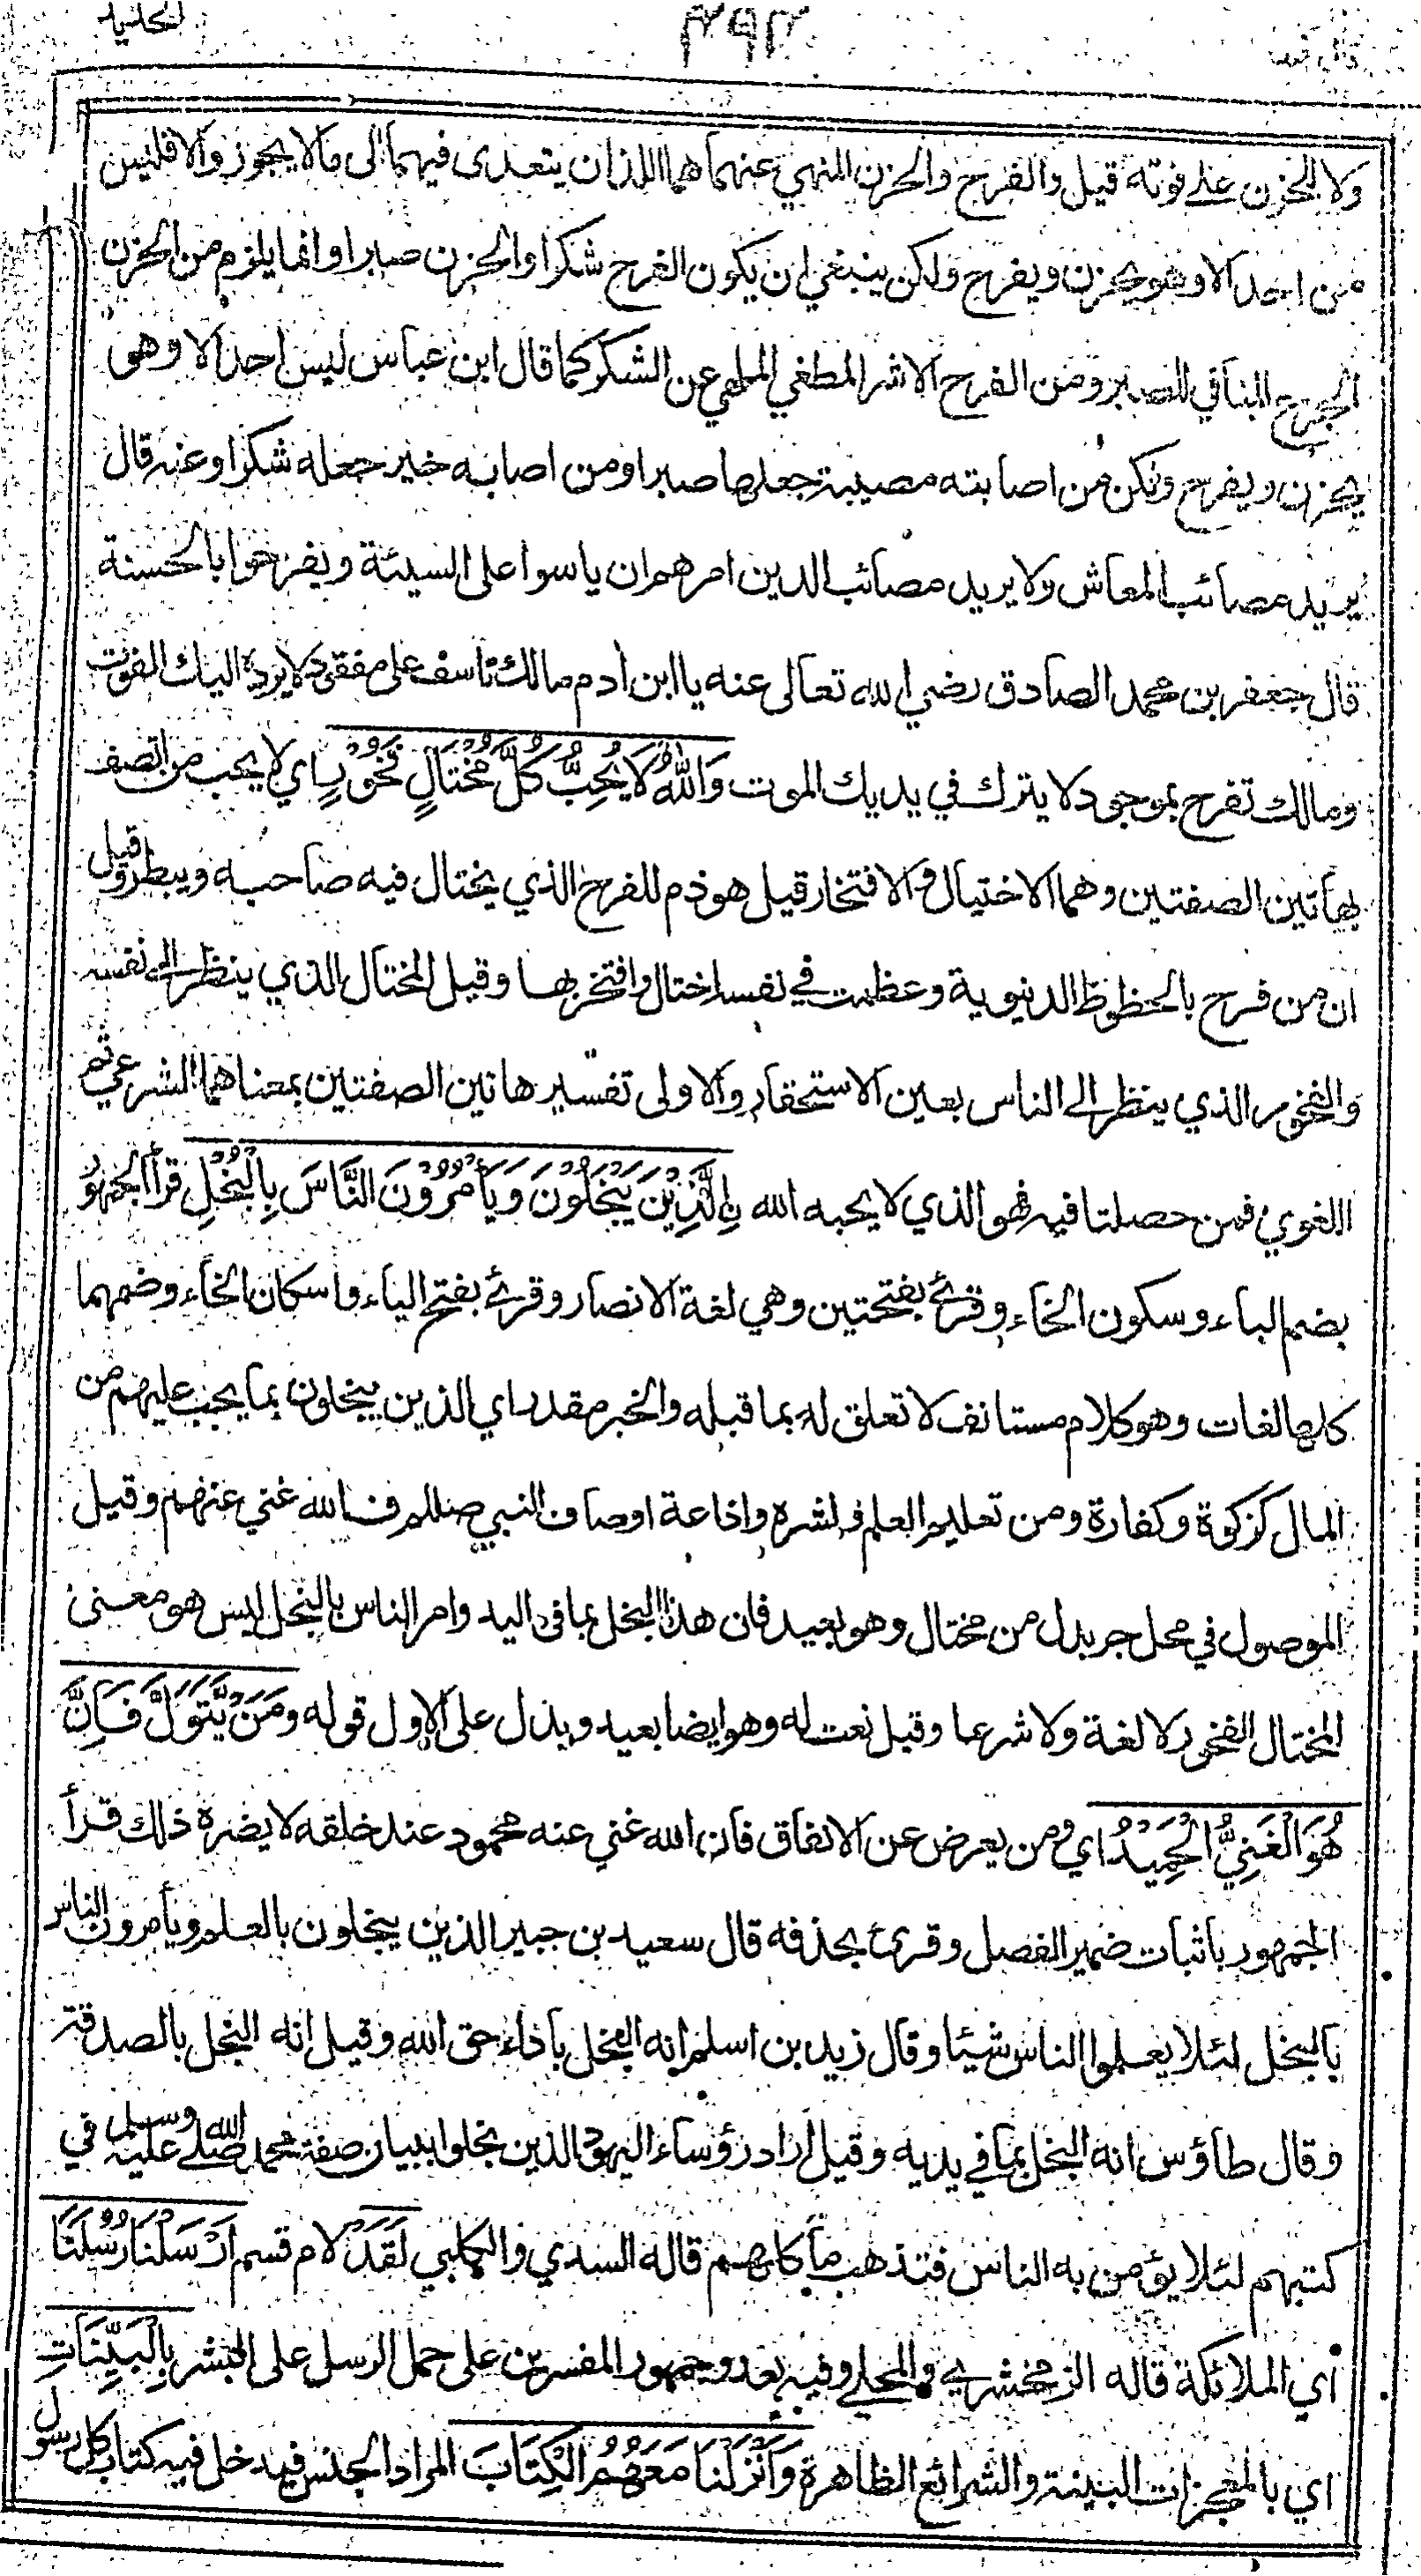 الحديد
٣٩٣
قال فما
ولا الحزن على فوته قيل والفرح والحزن المنهي عنهما هما اللذان يتعدى فيهما الى ما لا يجوز والا فليس
من احد الا وهو يحزن ويفرح ولكن ينبغي ان يكون الفرح شكرا والحزن صبرا وانما يلزم من الحزن
الجزع المنافي للصبر ومن الفرح الاشر المطغي الملهي عن الشكر كما قال ابن عباس ليس احد الا وهو
يحزن ويفرح ولكن من اصابته مصيبة جعلها صبرا ومن اصابه خير جعله شكرا وعنه قال
يريد مصائب المعاش ولا يريد مصائب الدين امرهم ان ياسوا على السيئة ويفرحوا بالحسنة
قال جعفر بن محمد الصادق رضي الله تعالى عنه يا ابن أدم مالك تاسف على مفقود لا يرده اليك الفوت
ومالك تفرح بموجود لا يترك في يديك الموت وَاللهُ لَا يُحِبُّ كُلَّ مُخْتَالٍ فَخُوْرٍ اي لا يحب من اتصف
بهاتين الصفتين وهما الاختيال والافتخار قيل هو ذم للفرح الذي يختال فيه صاحبه ويبطر وقيل
ان من فرح بالحظوظ الدنيوية وعظمت في نفسه اختال وافتخر بها وقيل المختال الذي ينظر الى نفسه
والفخور الذي ينظر الى الناس بعين الاستحقار والاولى تفسير هاتين الصفتين بمعناهما الشرعي ثم
اللغوي فمن حصلتا فيه فهو الذي لا يحبه الله نِالَّذِيْنَ يَبْخَلُوْنَ وَيَأْمُرُوْنَ النَّاسَ بِالْبُخْلِ قرأ الجمهور
بضم الباء وسكون الخاء وقرئ بفتحتين وهي لغة الانصار وقرئ بفتح الباء واسكان الخاء وضمهما
كلها لغات وهو كلام مستانف لا تعلق له بما قبله والخبر مقدر اي الذين يبخلون بما يجب عليهم من
المال كزكوة وكفارة ومن تعليم العلم ونشره واذاعة اوصاف النبي صللم فالله غني عنهم وقيل
الموصول في محل جر بدل من مختال وهو بعيد فان هذا البخل بما في اليد وامر الناس بالبخل ليس هو معنى
المختال الفخور لا لغة ولا شرعا وقيل نعت له وهو ايضا بعيد ويدل على الاول قوله وَمَنْ يَّتَوَلَّ فَاِنَّ
هُوَ الْغَنِيُّ الْحَمِيْدُ اي ومن يعرض عن الانفاق فان الله غني عنه محمود عند خلقه لا يضره ذلك قرأ
الجمهور باثبات ضمير الفصل وقرئ بحذفه قال سعيد بن جبير الذين يبخلون بالعلم ويأمرون الناس
بالبخل لئلا يعلموا الناس شيئا وقال زيد بن اسلم انه البخل باداء حق الله وقيل انه البخل بالصدقة
وقال طاؤس انه البخل بما في يديه وقيل اراد رؤساء اليهود الذين بخلوا ببيان صفة محمد صلى الله عليه وسلم في
كتبهم لئلا يؤمن به الناس فتذهب مأكلهم قاله السدي والكلبي لَقَدْ لام قسم اَرْسَلْنَا رُسُلَنَا
اي الملائكة قاله الزمخشري والمحلي وفيه بعد وجمهور المفسرين على حمل الرسل على البشر بِالْبَيِّنَاتِ
اي بالمعجزات البينة والشرائع الظاهرة وَاَنْزَلْنَا مَعَهُمُ الْكِتَابَ المراد الجنس فيدخل فيه كتاب كل رسول